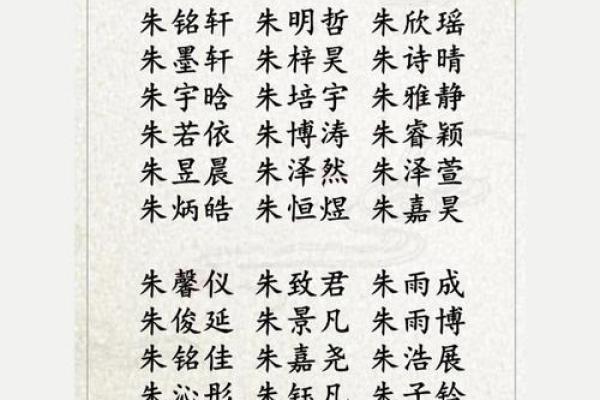 朱铭轩 朱明哲 朱欣瑶
朱墨轩 朱梓昊 朱诗晴
朱宇晗 朱培宇 朱雅静
朱若依 朱博涛 朱睿颖
朱昱晨 朱泽然 朱泽萱
朱炳皓 朱恒煜 朱嘉昊
朱馨仪 朱致君 朱雨成
朱俊延 朱景凡 朱雨博
朱铭佳 朱嘉尧 朱浩展
朱沁彤 朱钰凡 朱子